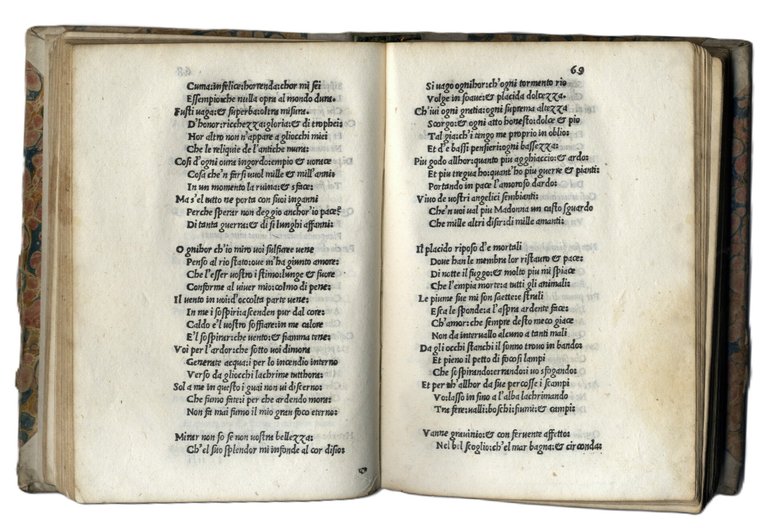 Cuma: infelice: horrenda: c'hor mi sei
Essempio: che nulla opra al mondo dura.
Fusti vaga: & superba: oltra misura.
D'honor: ricchezza: gloria: & di trophei:
Hor altro non n'appare a gliocchi miei
Che le reliquie de l'antiche mura.
Cosi d'ogni cura ingordo: empio & vorace
Cosa ch'n fersi vuol mille & mill'anni:
In un momento la ruina: & sface:
Ma s'el tutto ne porta con suoi inganni
Perche sperar non deggio anchor'io pace?
Di tanta guerra: & di si lunghi affanni:
O gnihor ch'io miro voi sulfuree vene
Penso al rio stato: oue m'ha giunto amore:
Che l'esser vostro i stimo: lunge & fuore
Conforme al viver mio: colmo di pene:
Il vento in voi: d'occolta parte vene:
In me i sospiri: ascenden pur dal core:
Caldo è'l vostro soffiare: in me calore
E'l sospirar: che vento: & fiamma tene:
Voi per l'ardor: che sotto voi dimora
Generate acqua: i per lo incendio interno
Verso da gliocchi lachrime tutthora:
Sol a me in questo i guai non vi discerno:
Che siamo fate: i per che ardendo mora:
Non fa mai fumo il mio gran foco eterno:
Mirar non so se non vostra bellezza:
Ch'el suo splendor mi infonde al cor disio:
69
Si vago ognihor: ch'ogni tormento rio
Volge in soave: & placida dolcezza.
Ch'iui ogni gratia: ogni suprema altezza
Scorgo: & ogni atto honesto: dolce & pio
Tal gia: ch'i tengo me proprio in oblio:
Et d'e bassi pensieri: ogni bassezza:
Piu godo allhor: quanto piu agghiaccio: & ardo:
Et piu tregua ho: quant'ho piu guerre & pianti:
Portando in pace l'amoroso dardo:
Viuo de vostri angelici sembianti:
Che'n voi val piu Madonna un casto sguardo
Che mille altri disir: di mille amanti:
Il placido riposo d'e mortali
Doue han le membra lor ristauro & pace:
Di notte il fuggo: & molto piu mi spiace
Che l'empia morte: a tutti gli animali:
Le piume sue mi son saette: & strali
Esca le sponde: a l'aspra ardente face:
Ch'amor: che sempre desto meco giace
Non da intervallo alcuno a tanti mali
Da gli occhi stanchi il sonno trouo in bando:
Et pieno il petto di focosi lampi
Che sospirando: errando: i vo sfogando:
Et per ch'allhor da sue percosse i scampi
Vo: lasso in fino a l'alba lachrimando
Tra fere: valli: boschi: fiumi: & campi:
Vanne gravinio: & con feruente affetto:
Nel bel scoglio: ch'el mar bagna: & circonda: